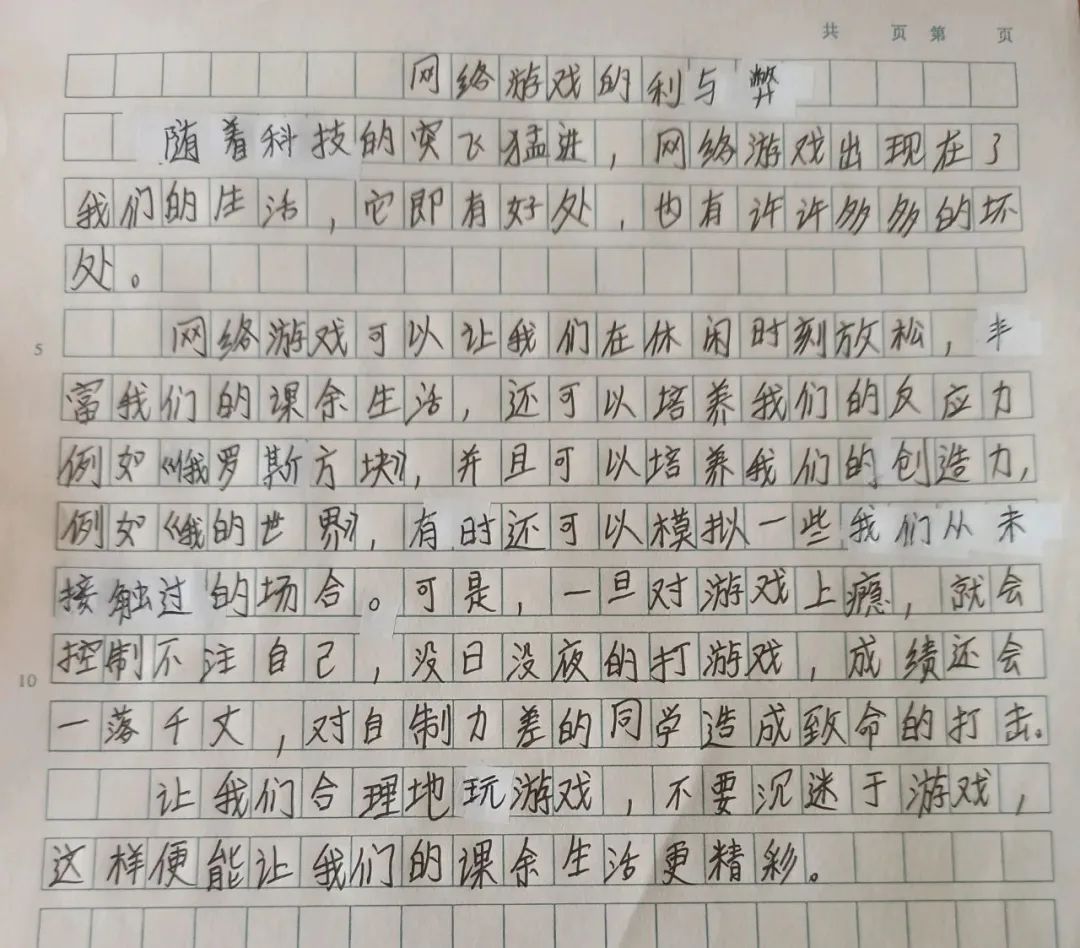 共 页 第 页
网络游戏的利与弊
随着科技的突飞猛进，网络游戏出现在了
我们的生活，它即有好处，也有许许多多的坏
处。
5 网络游戏可以让我们在休闲时刻放松，丰
富我们的课余生活，还可以培养我们的反应力
例如《俄罗斯方块》，并且可以培养我们的创造力，
例如《我的世界》，有时还可以模拟一些我们从未
接触过的场合。可是，一旦对游戏上瘾，就会
10 控制不注自己，没日没夜的打游戏，成绩还会
一落千丈，对自制力差的同学造成致命的打击。
让我们合理地玩游戏，不要沉迷于游戏，
这样便能让我们的课余生活更精彩。